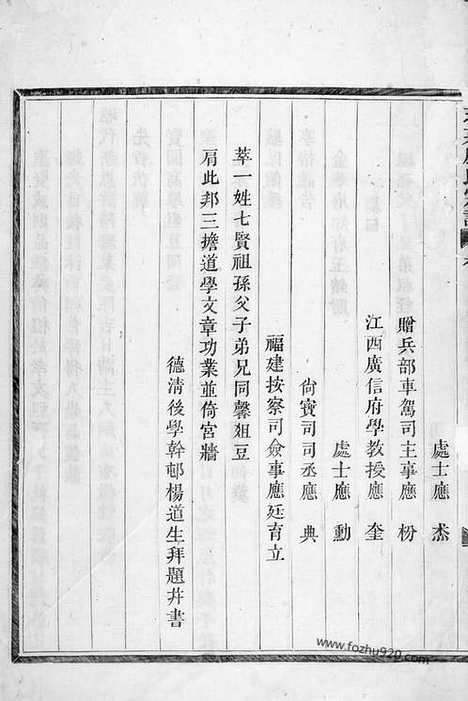 處士應杰
贈兵部車駕司主事應枌
江西廣信府學教授應奎
處士應勳
尙寳司司丞應典
福建按察司僉事應廷育立
萃一姓七賢祖孫父子弟兄同馨姐豆
肩此邦三擔道學文章功業並倚宮牆
德清後學幹邨楊道生拜題幷書
www.fozhu920.com